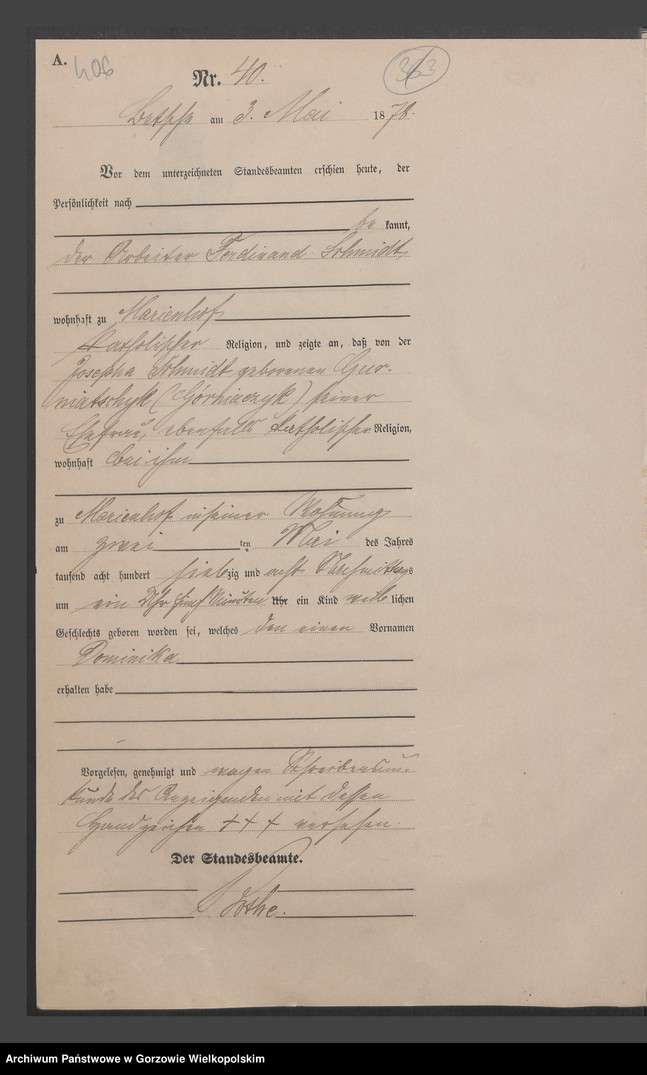 A.
406
363
Nr. 40.
Betsche am 3. Mai 1878.
Vor dem unterzeichneten Standesbeamten erschien heute, der
Persönlichkeit nach
be kannt,
der Arbeiter Ferdinand Schmidt,
wohnhaft zu Marienhof
katholischer Religion, und zeigte an, daß von der
Josepha Schmidt geborenen Gur-
niatschyk (Górniaczyk) seiner
Ehefrau, ebenfalls katholischer Religion,
wohnhaft bei ihm
zu Marienhof in seiner Wohnung
am zwei ten Mai des Jahres
tausend acht hundert siebzig und acht Nachmittags
um ein Uhr fünf Minuten Uhr ein Kind weib lichen
Geschlechts geboren worden sei, welches den einen Vornamen
Dominika
erhalten habe
Vorgelesen, genehmigt und wegen Schreibensun-
kunde des Anzeigenden mit dessen
Handzeichen +++ versehen.
Der Standesbeamte.
Archiwum Państwowe w Gorzowie Wielkopolskim